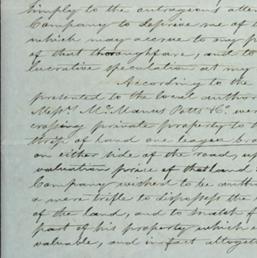 simply to the outrageous atte
Company to deprive me of
which may accrue to my p
of that thoroughfare, and to
lucrative speculation at my
According to the
presented to the local author
Messrs. McManus Potts & C. were
crossing private property to
strip of land one league bro
on either side of the road, up
valuation price of that land
Company wished to be auth
a mere trifle to dispossess the
of the land, and to snatch f
part of his property which
valuable, and in fact altoget